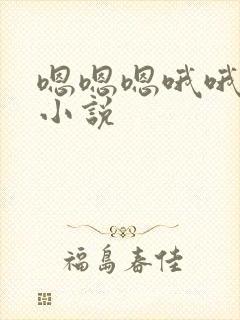 嗯嗯嗯哦哦
小说
福島春佳